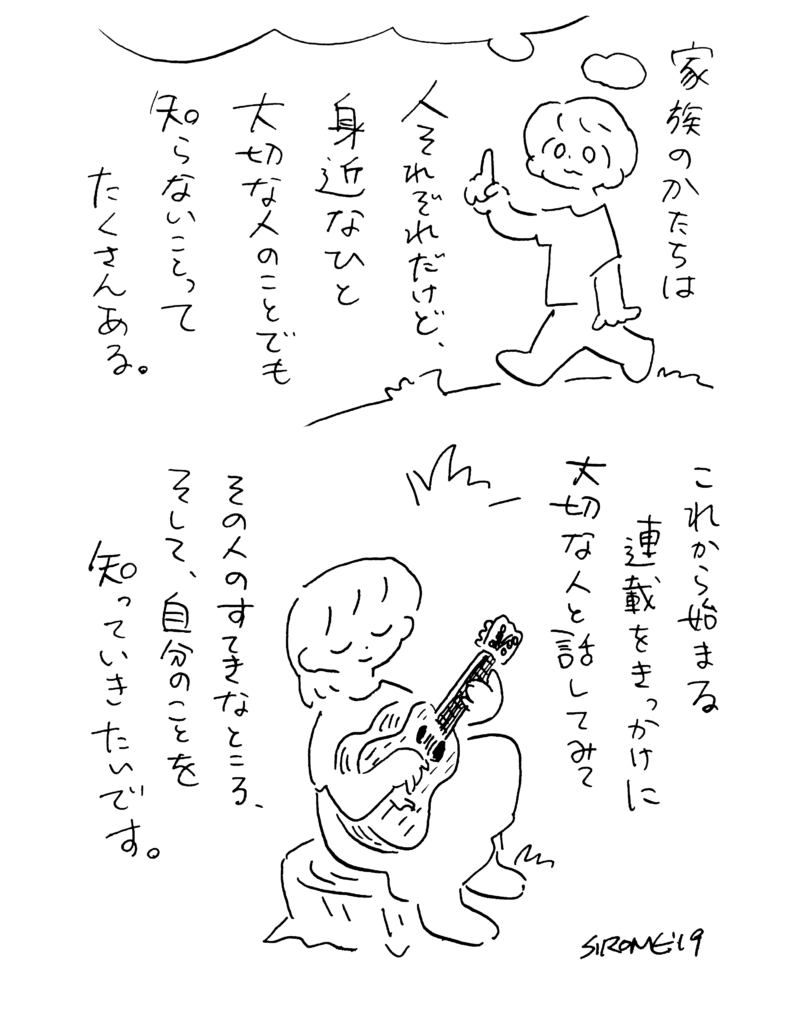 家族のかたちは
人それぞれだけど、
身近なひと
大切な人のことでも
知らないことって
たくさんある。
これから始まる
連載をきっかけに
大切な人と話してみて
その人のすてきなところ、
そして、自分のことを
知っていきたいです。
SIROMEi19